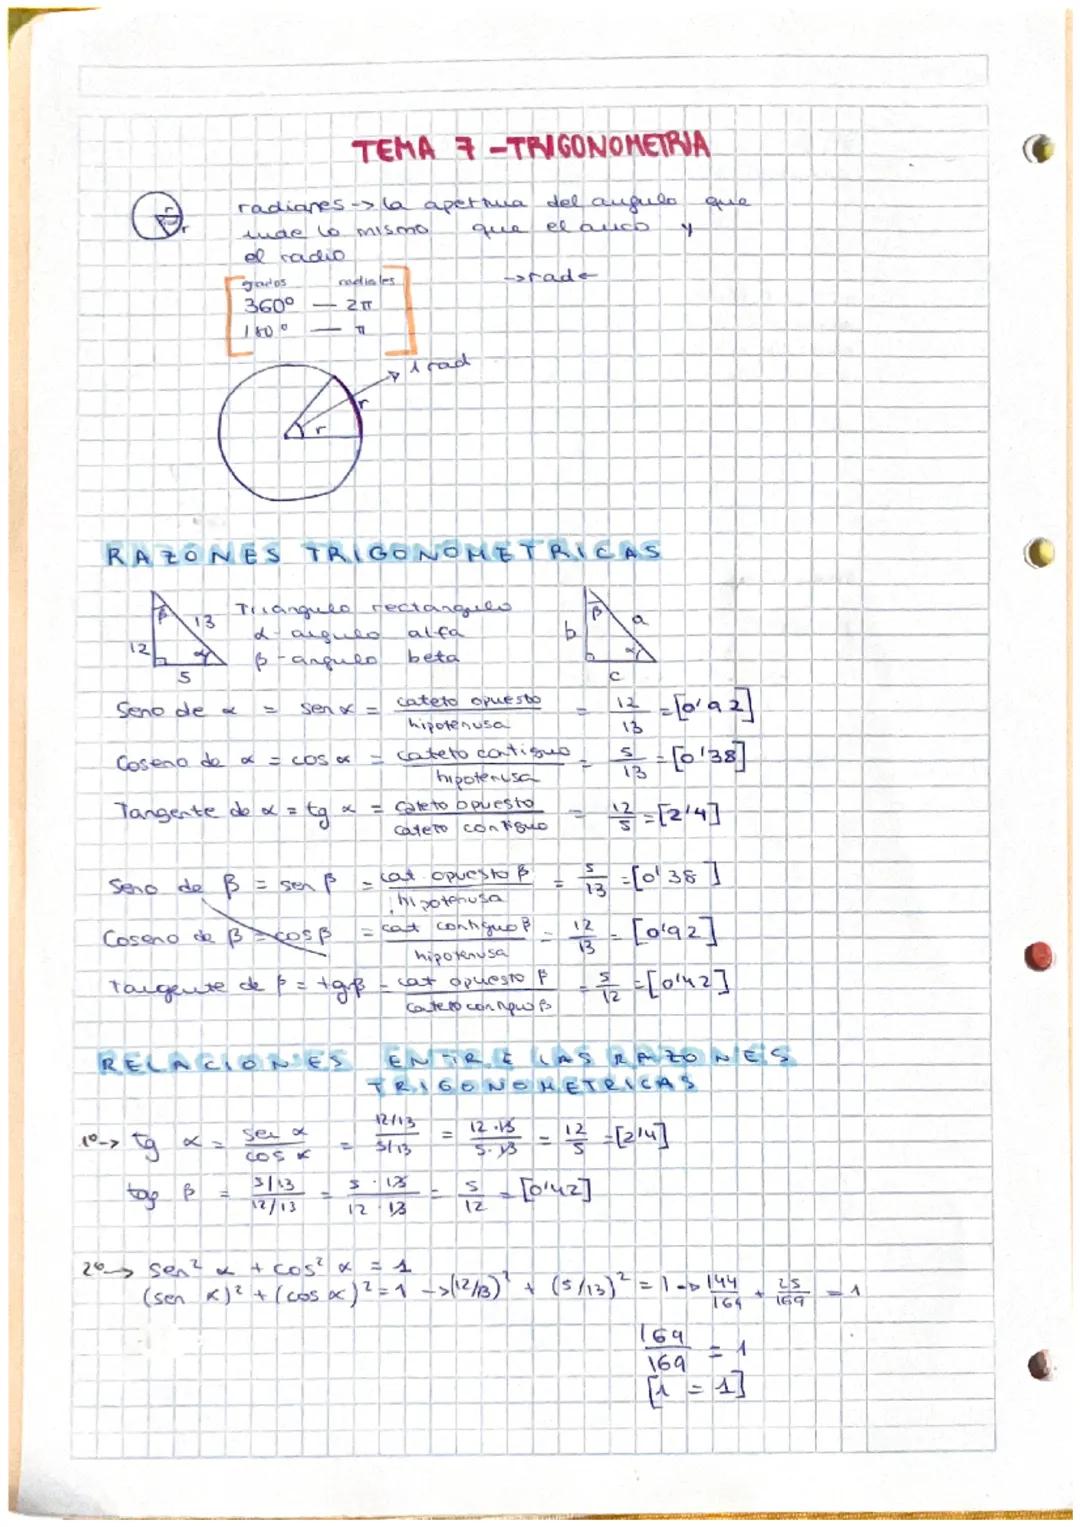 TEMA 7 - TRIGONOMETRIA
r
r
radianes -> la apertura del angulo que
mide lo mismo que el arco y
el radio
->rad<-
grados radiales
360º — 2π
180º — π
1 rad
r
r
RAZONES TRIGONOMETRICAS
β 13 12 α 5
Triangulo rectangulo
α - angulo alfa
β - angulo beta
β a b α c
Seno de α = sen α = cateto opuesto / hipotenusa = 12/13 = [0'92]
Coseno de α = cos α = cateto contiguo / hipotenusa = 5/13 = [0'38]
Tangente de α = tg α = cateto opuesto / cateto contiguo = 12/5 = [2'4]
Seno de β = sen β = cat opuesto β / hipotenusa = 5/13 = [0'38]
Coseno de β = cos β = cat contiguo β / hipotenusa = 12/13 = [0'92]
Tangente de β = tg β = cat opuesto β / cateto contiguo β = 5/12 = [0'42]
RELACIONES ENTRE LAS RAZONES
TRIGONOMETRICAS
1º-> tg α = sen α / cos α = 12/13 / 5/13 = 12·13 / 5·13 = 12/5 = [2'4]
tag β = 5/13 / 12/13 = 5·13 / 12·13 = 5/12 = [0'42]
2º-> sen² α + cos² α = 1
(sen α)² + (cos α)² = 1 -> (12/13)² + (5/13)² = 1 -> 144/169 + 25/169 = 1
169/169 = 1
[1 = 1]